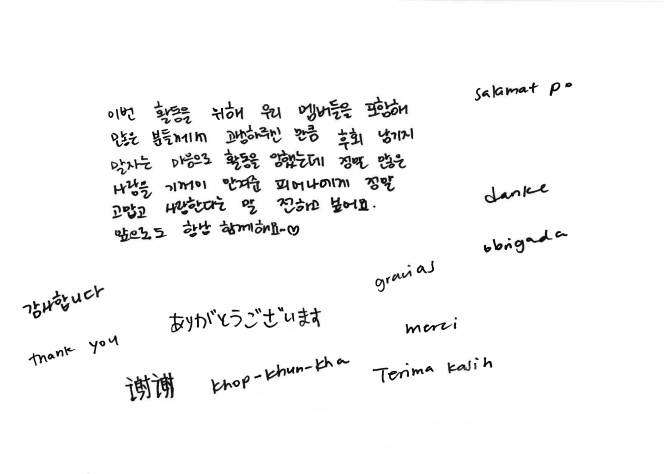 이번 활동을 위해 우리 멤버들을 포함해
많은 분들께서 고생해주신 만큼 후회 남기지
말자는 마음으로 활동을 임했는데 정말 많은
사랑을 기꺼이 안겨준 피어나에게 정말
고맙고 사랑한다는 말 전하고 싶어요.
앞으로도 항상 함께해요~♡
salamat po
danke
obrigada
gracias
감사합니다
ありがとうございます
merci
thank you
谢谢
khop-khun-kha
Terima kasih